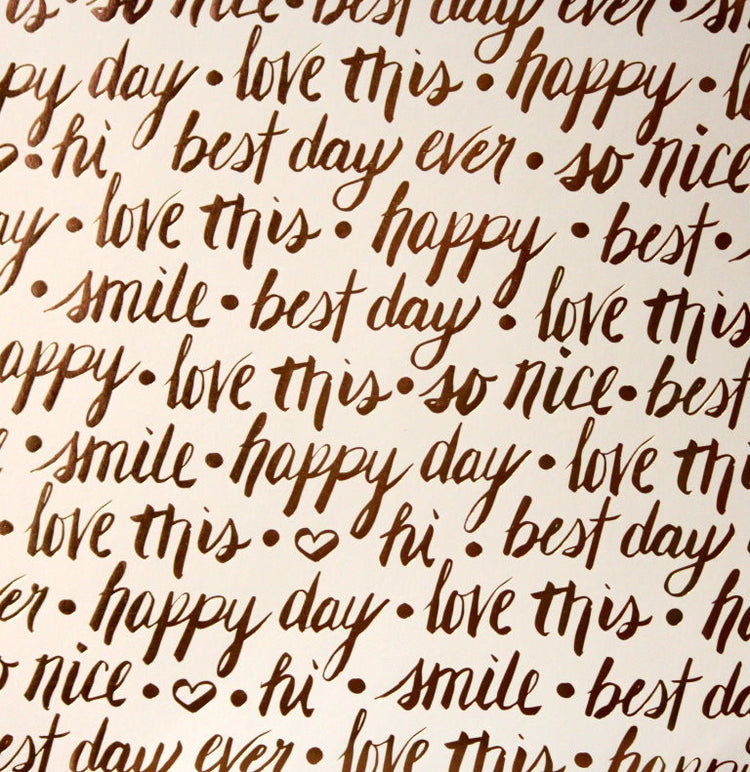 is • so nice • best day ever • sm
ppy day • love this • happy • l
♡ • hi best day ever • so nice
ay • love this • happy • best •
• smile • best day • love this
appy • love this • so nice • best
• smile • happy day • love th
• love this • ♡ hi • best day
er • happy day • love this • h
o nice • ♡ • hi • smile • best da
est day ever • love this • happy